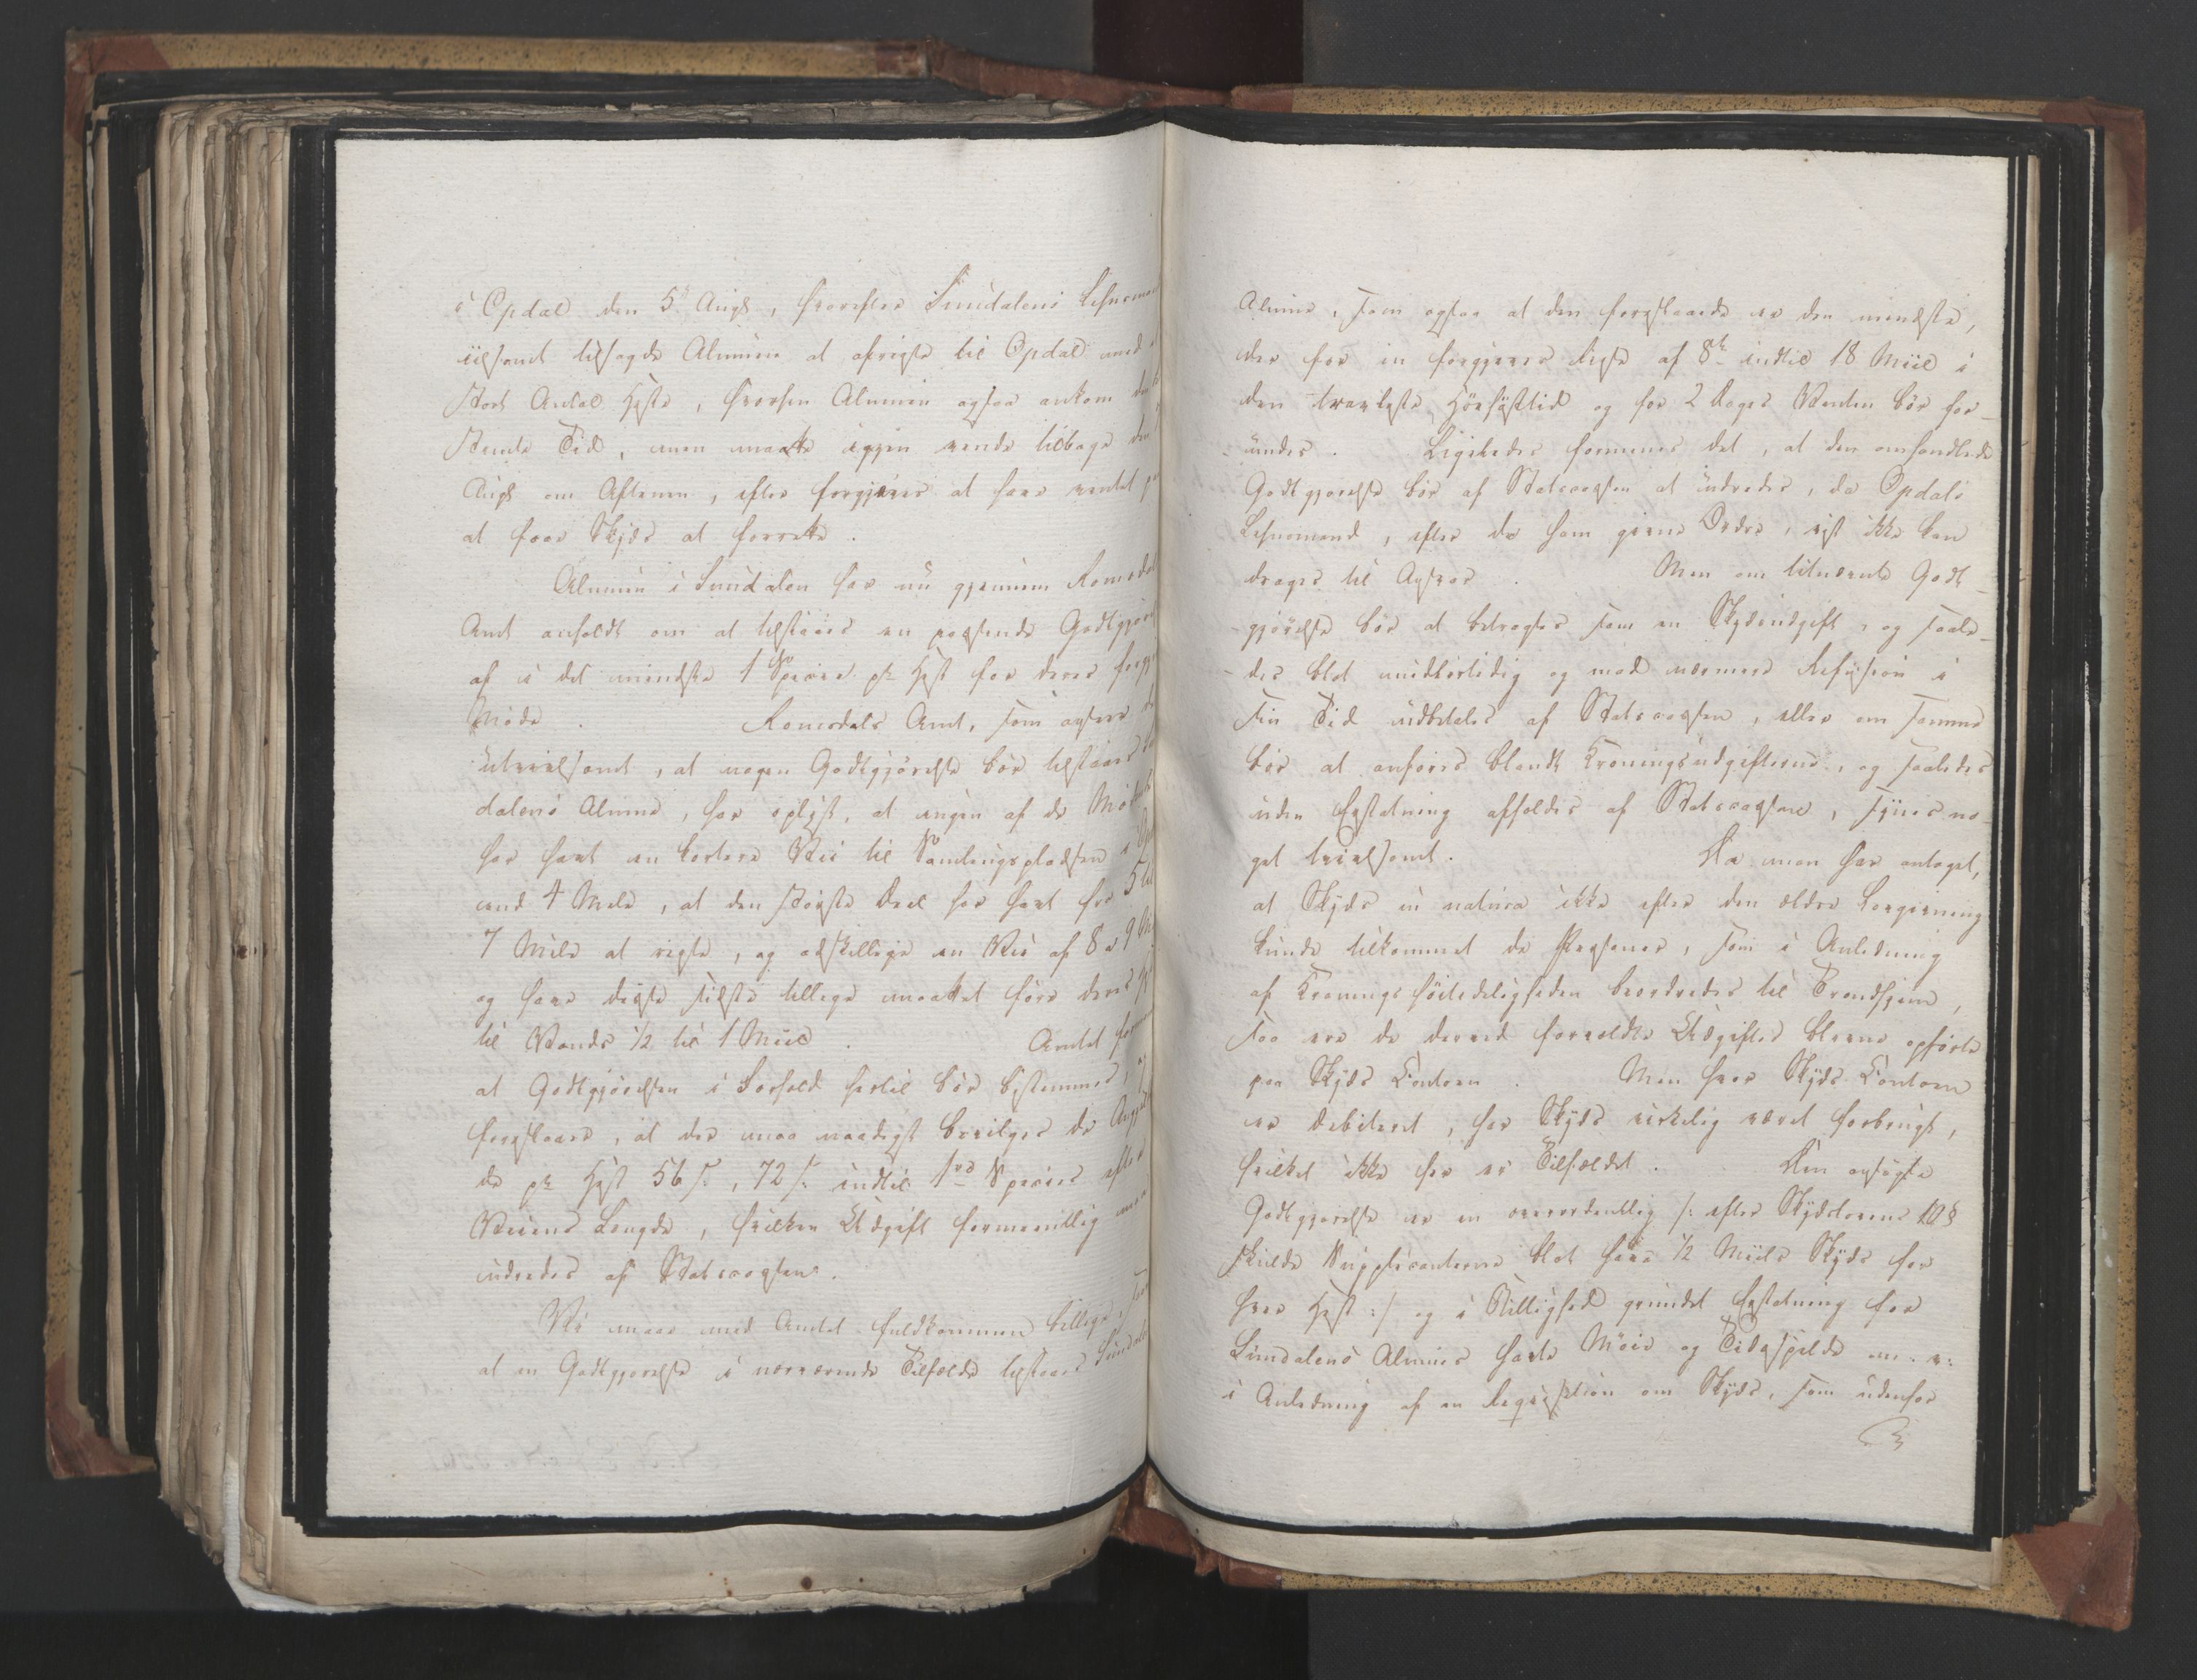 i Opdal den 5te Augt, hvorefter Sundalens Lehnsmand
iilsomt tilsagde Almuen at afreise til Opdal med
stort Antal Heste, hvorhen Almuen ogsaa ankom
stemte Tid, men maatte igjen vende tilbage den
Augt om Aftenen, efter forgjæves at have ventet
at faae Skyds at forrette.
Almuen i Sundalen har nu gjennem Romsdals
Amt anholdt om at tilstaaes en passende Godtgjørelse
af i det mindste 1 Specie pr Hest for deres
Møde. Romsdals Amt, som anseer
utvivlsomt, at nogen Godtgjørelse bør tilstaaes
dalens Almue, har oplyst, at ingen af de
har havt en kortere Vei til Samlingspladsen i
end 4 Mile, at den største Deel har havt fra 5 til
7 Mile at reise, og adskillige en Vei af 8 a 9
og have disse sidste tillige maattet føre deres
til Vands 1/2 til 1 Miil. Amtet
at Godtgjørelsen i Forhold hertil bør bestemmes,
foreslaaer, at der maa naadigst bevilges de
de pr Hest 56 s:, 72 s: indtil 1 Species efter
Veiens Længde, hvilken Udgift formeentlig
udredes af Statscassen.
Vi maae med Amtet fuldkommen billige,
at en Godtgjørelse i nærværende Tilfælde tilstaaes
Almue, som ogsaa at den foreslaaede er den mindste,
der for en forgjæves Reise af 8te indtil 18 Miil i
den travleste Høehøsttid og for 2 Dages Venten bør for-
undes. Ligeledes formenes det, at den omhandlede
Godtgjørelse bør af Statscassen at udredes, da Opdals
Lehnsmand, efter de ham givne Ordre, vist ikke kan
drages til Ansvar. Men om bemeldte Godt-
gjørelse bør at betragtes som en Skydsudgift, og saale-
des blot midlertidig og mod nærmere Refusion i
sin Tid udbetales af Statscassen, eller om samme
bør at anføres blandt Kroningsudgifterne, og saaledes
uden Erstatning afholdes af Statscassen, synes no-
get tvivlsomt. Da man har antaget,
at Skyds in natura ikke efter den ældre Lovgivning
kunde tilkommet de Personer, som i Anledning
af Kroningshøitideligheden beordredes til Trondhjem,
saa ere de derved forvoldte Udgifter blevne opførte
paa Skyds Contoen. Men hvor Skyds Contoen
er debiteret, har Skyds virkelig været forbrugt,
hvilket ikke her er Tilfældet. Den ansøgte
Godtgjørelse er en overordentlig /: efter Skydslovens 10 §
skulde Supplicanterne blot have 1/2 Miils Skyds for
hver Hest :/ og i Billighed grundet Erstatning for
Sundalens Almues havte Møie og Tidsspilde m. v.
i Anledning af en Reqvisition om Skyds, som udenfor